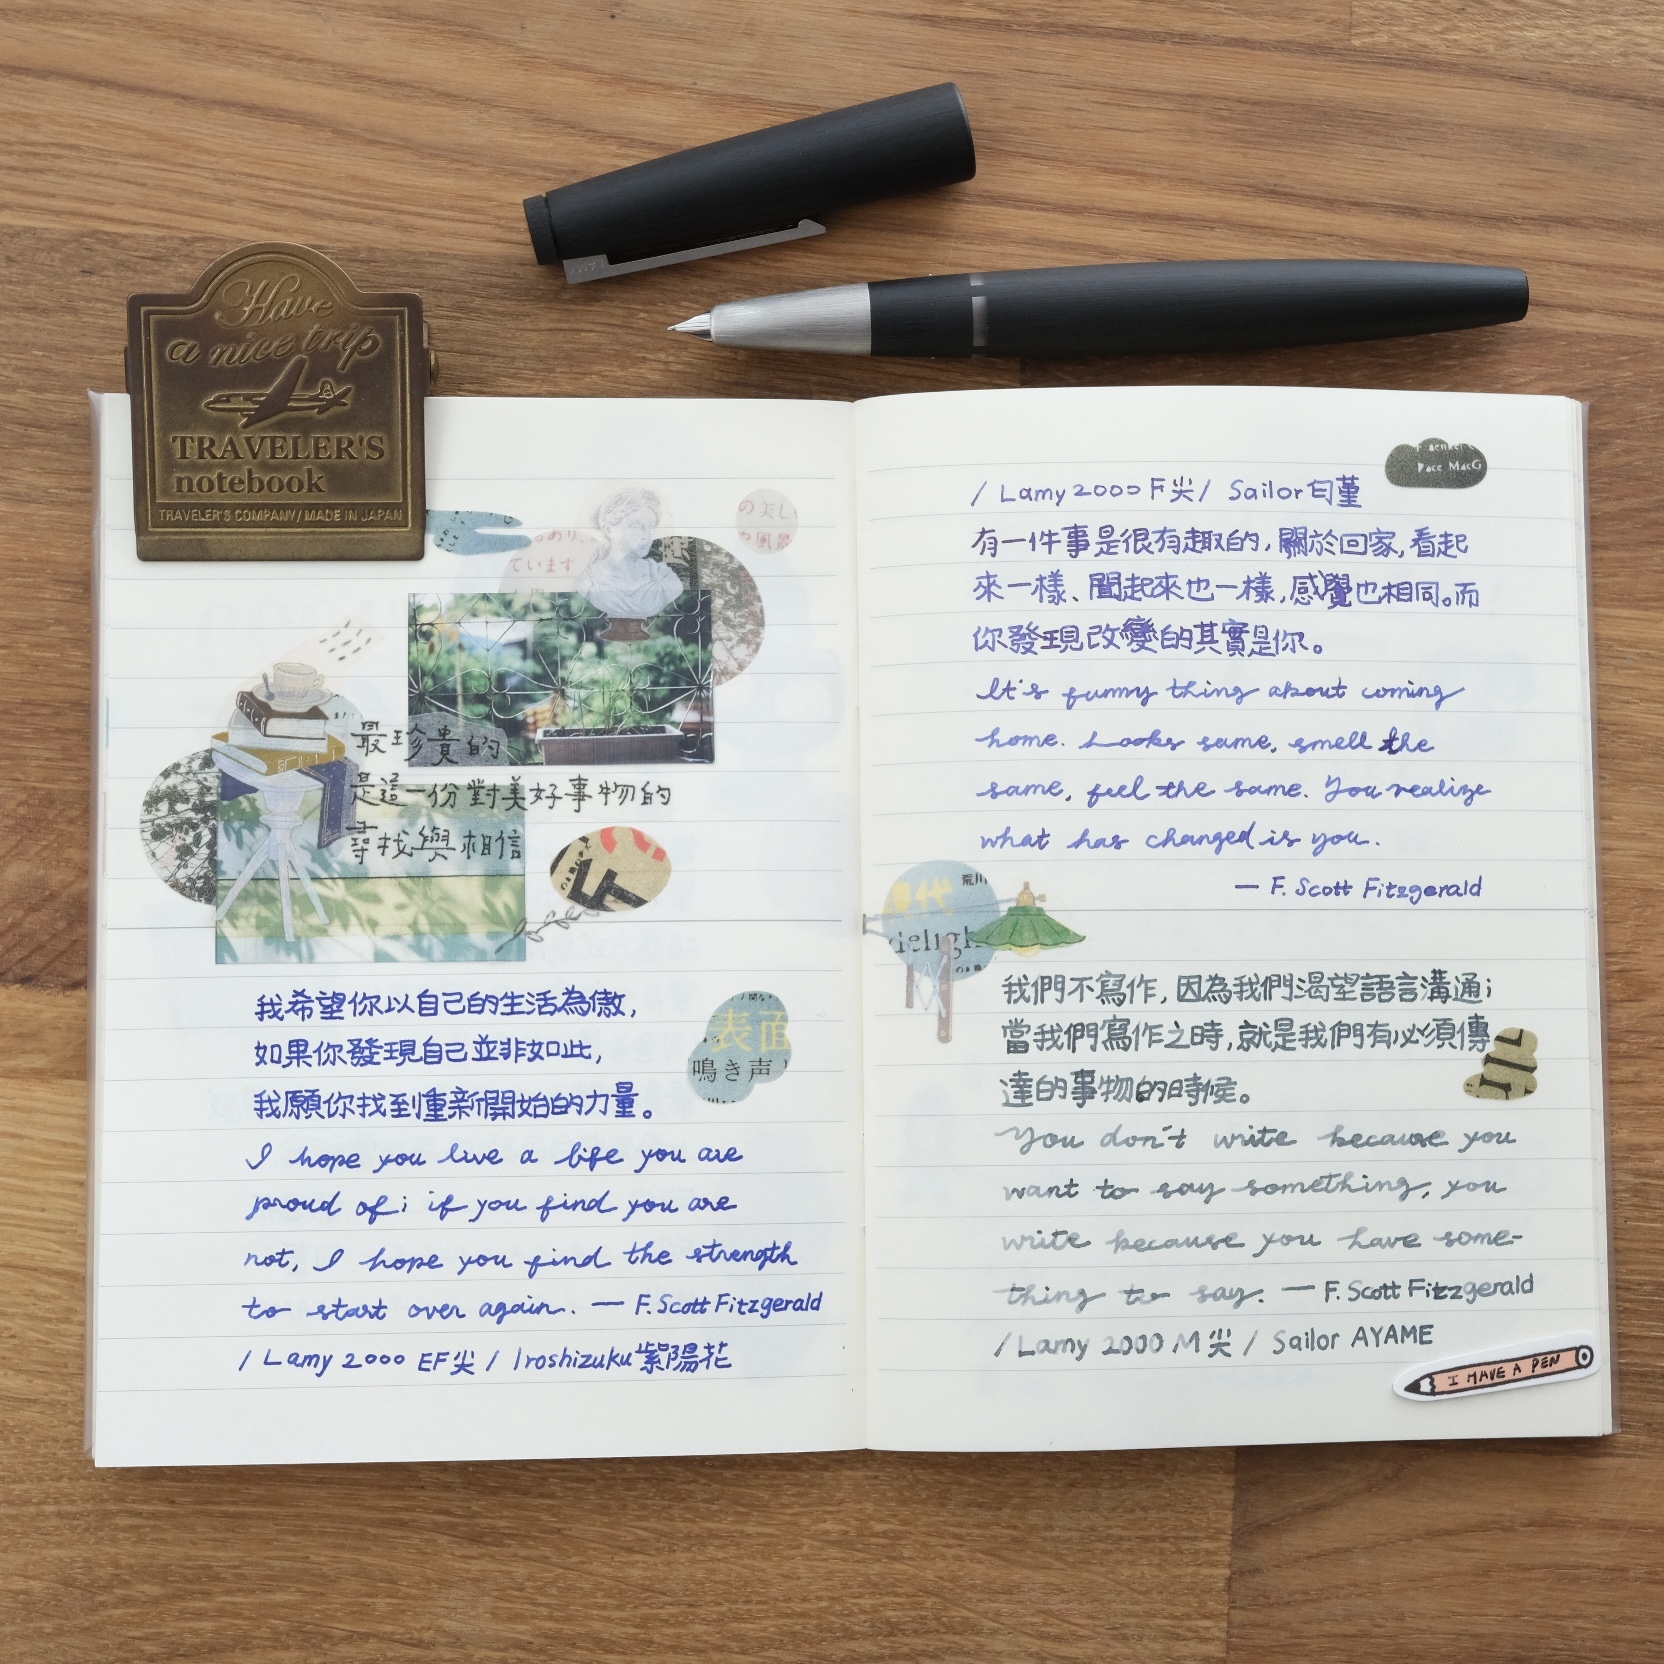 Have
a nice trip
TRAVELER'S
notebook
TRAVELER'S COMPANY/MADE IN JAPAN
LAMY
あり、
ています
の美し
風景
最珍貴的
是這一份對美好事物的
尋找與相信
表面
鳴き声
我希望你以自己的生活為傲,
如果你發現自己並非如此,
我願你找到重新開始的力量。
I hope you live a life you are
proud of; if you find you are
not, I hope you find the strength
to start over again. — F. Scott Fitzgerald
/ Lamy 2000 EF尖 / Iroshizuku紫陽花
Pace MacG
/ Lamy 2000 F尖 / Sailor匂菫
有一件事是很有趣的,關於回家,看起
來一樣、聞起來也一樣,感覺也相同。而
你發現改變的其實是你。
It's funny thing about coming
home. Looks same, smell the
same, feel the same. You realize
what has changed is you.
— F. Scott Fitzgerald
代
荒川
我們不寫作,因為我們渴望語言溝通;
當我們寫作之時,就是我們有必須傳
達的事物的時候。
You don't write because you
want to say something, you
write because you have some-
thing to say. — F. Scott Fitzgerald
/ Lamy 2000 M尖 / Sailor AYAME
I HAVE A PEN